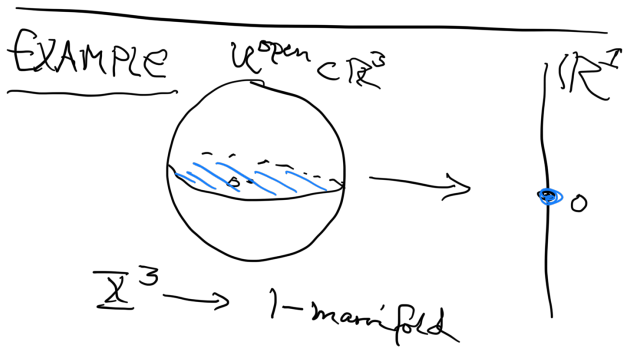 EXAMPLE
U^open ⊂ ℝ^3
ℝ^1
0
0
X^3 → 1-manifold